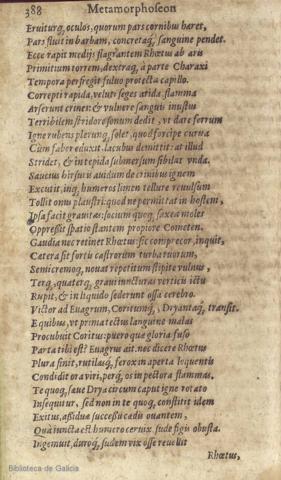 388 Metamorphoseon
Eruiturq́, oculos, quorum pars cornibus hæret,
Pars fluit in barbam, concretaq́, sanguine pendet.
Ecce rapit medijs flagrantem Rhœtus ab aris
Primitium torrem, dextraq, à parte Charaxi
Tempora perfregit fuluo protecta capillo.
Correpti rapida, velut seges arida, flamma
Arserunt crines: & vulnere sanguis inustus
Terribilem stridore sonum dedit, vt dare ferrum
Igne rubens plerunq, solet, quod forcipe curua
Cùm faber eduxit, lacubus demittit: at illud
Stridet, & in tepida submersum sibilat vnda.
Saucius hirsutis auidum de crinibus ignem
Excutit, inq, humeros limen tellure reuulsum
Tollit onus plaustri: quod ne permittat in hostem,
Ipsa facit grauitas: socium quoq, saxea moles
Oppressit spatio stantem propiore Cometen.
Gaudia nec retinet Rhœtus: sic comprecor, inquit,
Cætera sit fortis castrorum turba tuorum,
Semicremoq, nouat repetitum stipite vulnus,
Terq, quaterq, graui iuncturas verticis ictu
Rupit, & in liquido sederunt ossa cerebro.
Victor ad Euagrum, Coritumq́, Dryantaq́, transit.
E quibus, vt prima tectus lanugine malas
Procubuit Coritus: puero quæ gloria fuso
Parta tibi est? Euagrus ait. nec dicere Rhœtus
Plura sinit, rutilasq́, ferox in aperta loquentis
Condidit ora viri, perq́, os in pectora flammas.
Te quoq, sæue Drya circum caput igne rotato
Insequitur, sed non in te quoq, constitit idem
Exitus, assiduæ successu cædis ouantem,
Quà iuncta est humero ceruix, sude figis obusta.
Ingemuit, duroq́, sudem vix osse reuellit
Rhœtus,
Biblioteca de Galicia